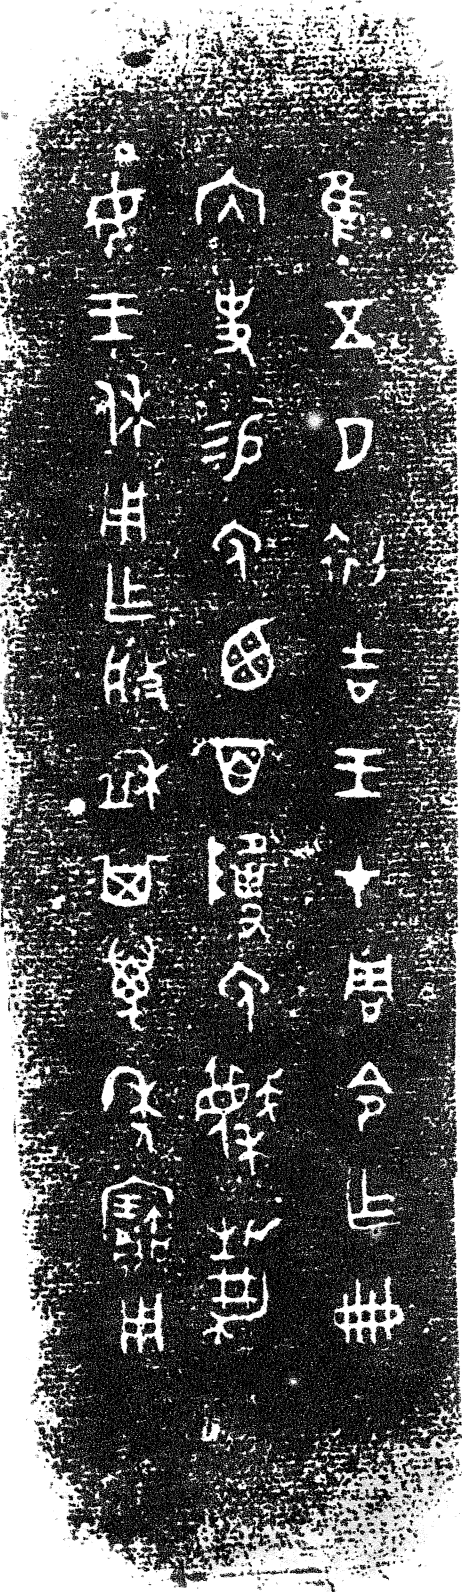 隹五月初吉王才周令乍册
内史易免鹵百免蔑静
女王休用乍般盉其萬年寶用